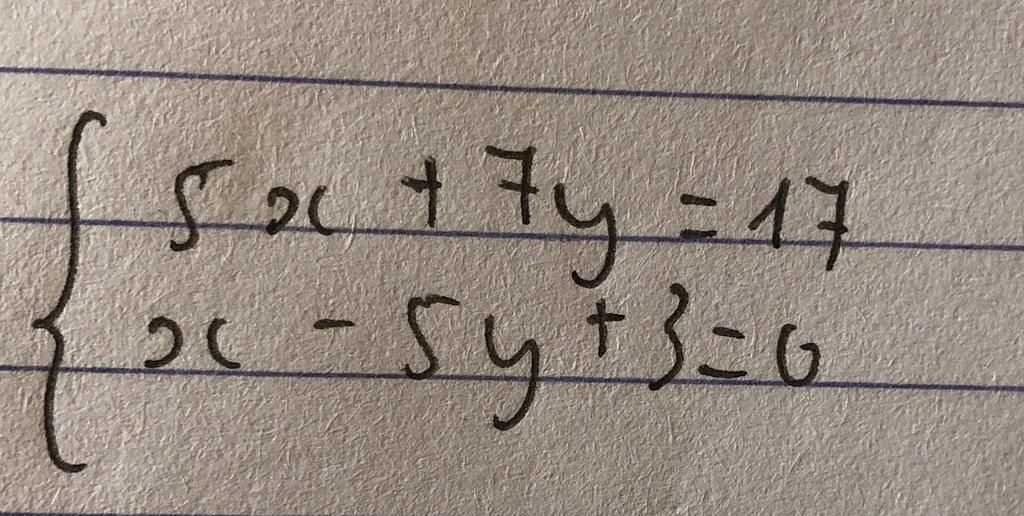 5x + 7y = 17
x - 5y + 3 = 0